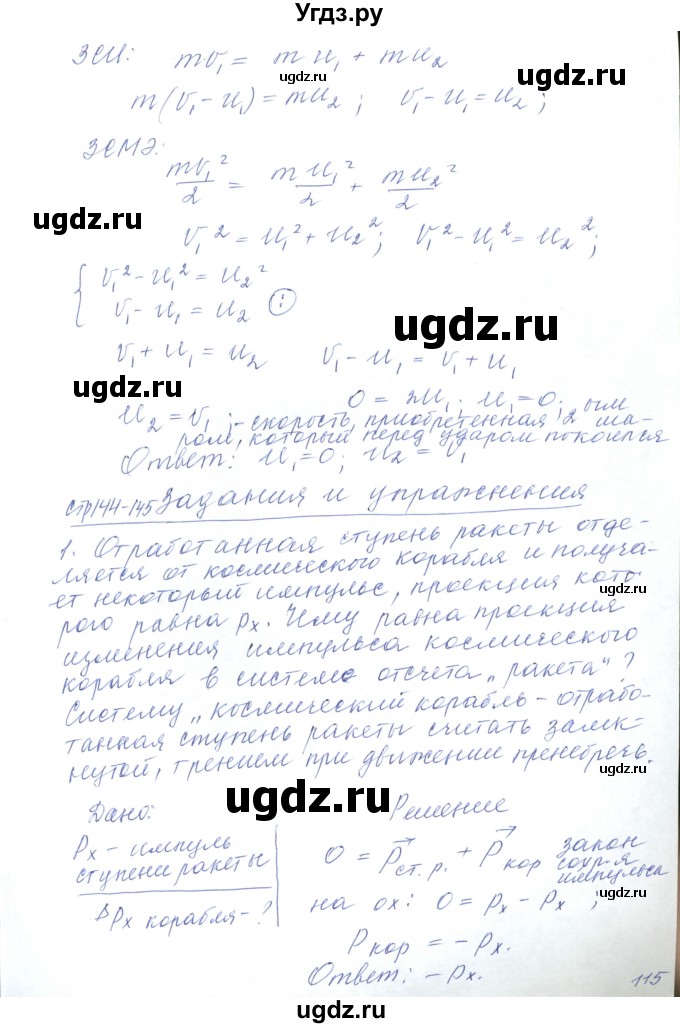 Угдз.ру
ЗСИ: mv₁ = mu₁ + mu₂
ugdz.ru
m(v₁ - u₁) = mu₂; v₁ - u₁ = u₂;
ugdz.ru
ЗСМЭ:
mv₁²/2 = mu₁²/2 + mu₂²/2
ugdz.ru
v₁² = u₁² + u₂²; v₁² - u₁² = u₂²;
{ v₁² - u₁² = u₂²
v₁ - u₁ = u₂ (:)
ugdz.ru
v₁ + u₁ = u₂ v₁ - u₁ = v₁ + u₁
ugdz.ru
0 = 2u₁; u₁ = 0;
u₂ = v₁; - скорость, приобретенная 2ым ша-
ром, который перед ударом покоился
ugdz.ru
Ответ: u₁ = 0; u₂ = v₁
стр144-145 Задания и упражнения
1. Отработанная ступень ракеты отде-
ляется от космического корабля и получа-
ет некоторый импульс, проекция кото
рого равна pх. Чему равна проекция
ugdz.ru
изменения импульса космического
корабля в системе отсчета „ракета“?
Систему „космический корабль - отрабо-
танная ступень ракеты считать замк-
нутой, трением при движении пренебречь.
ugdz.ru
ugdz.ru
Дано: Решение
Pх - импуль
ступени ракеты
0 = P⃗ст.р. + P⃗кор закон сохр-я импульса
ugdz.ru
ΔPх корабля - ?
на ох: 0 = pх - Pх;
Pкор = - Pх.
Ответ: - Pх.
115
ugdz.ru